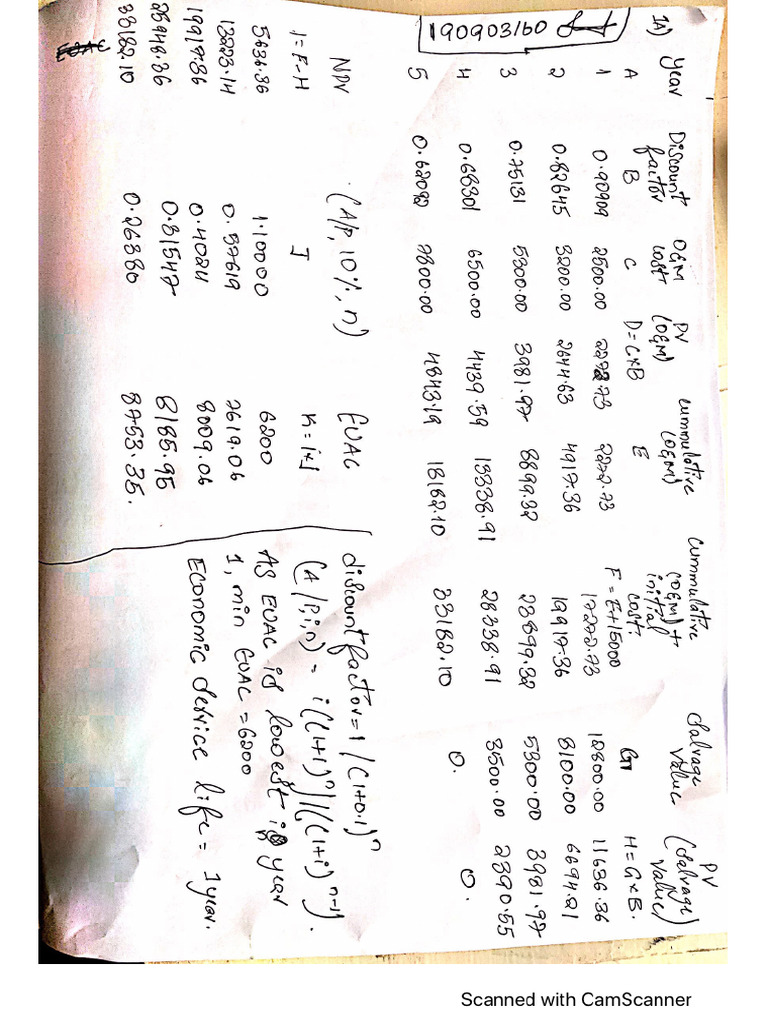 190903160
1A)
Year Discount factor O&M cost PV (O&M) cummulative (O&M) cummulative (O&M) + initial cost Salvage value PV (Salvage value)
A B C D=C*B E F=E+15000 G H=G*B.
1 0.90909 2500.00 2272.73 2272.73 17272.73 12800.00 11636.36
2 0.82645 3200.00 2644.63 4917.36 19917.36 8100.00 6694.21
3 0.75131 5300.00 3981.97 8899.32 23899.32 5300.00 3981.97
4 0.68301 6500.00 4439.59 13338.91 28338.91 3500.00 2390.55
5 0.62092 7800.00 4843.19 18182.10 33182.10 0. 0.
NPV (A/P, 10%, n) EUAC
I=F-H J K=I*J
5636.36 1.10000 6200
13223.14 0.57619 7619.06
19917.36 0.4021 8009.06
25948.36 0.31547 8185.95
33182.10 0.26380 8753.35.
EUAC
discount factor = 1/(1+0.1)^n
(A/P,i,n) = i((1+i)^n)/((1+i)^n-1).
AS EUAC is lowest is year
1, min EUAC = 6200
Economic Service life = 1 year.
Scanned with CamScanner